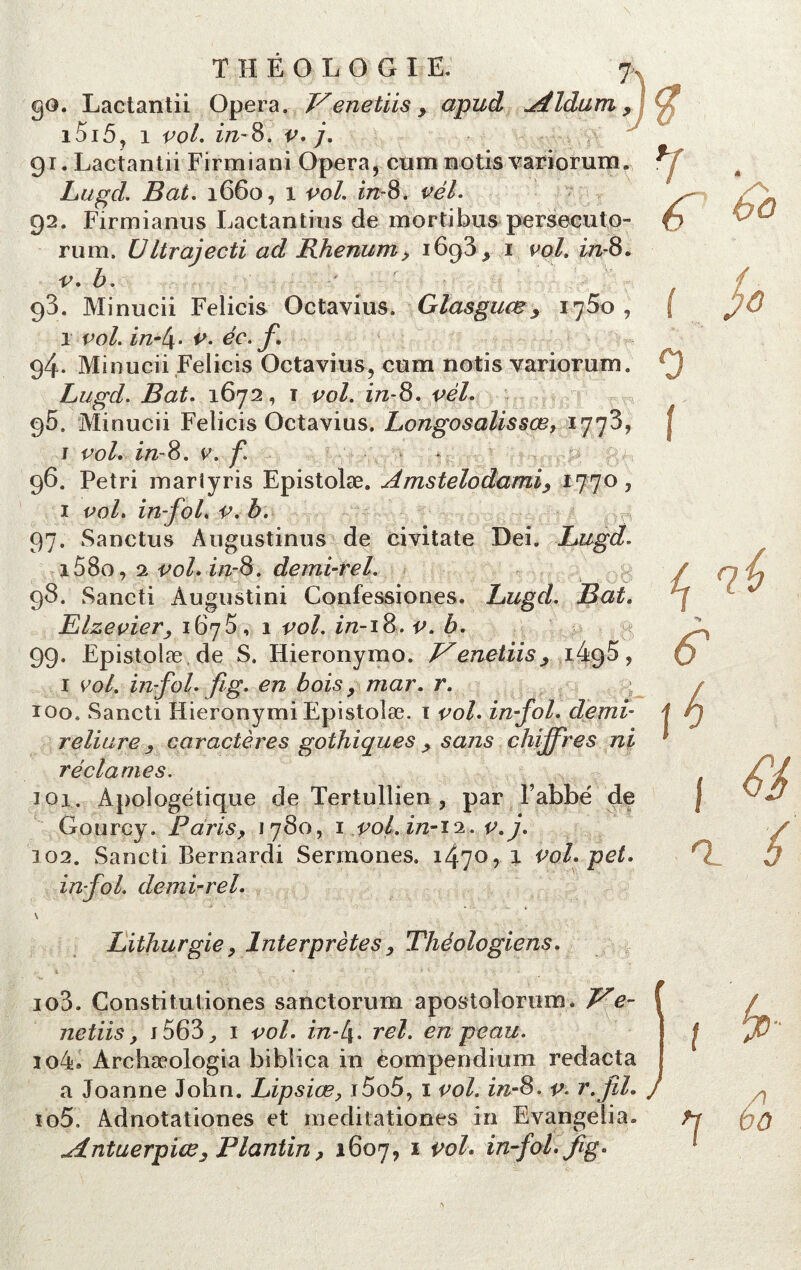 THÉOLOGIE. 7
90. Lactantii Opera. Venetiis, apud Aldum,
1515, 1 vol. in-8. v. j.
91. Lactantii Firmiani Opera, cum notis variorum.
Lugd. Bat. 1660, 1 vol. in-8. vél.
92. Firmianus Lactantius de mortibus persecuto-
rum. Ultrajecti ad Rhenum, 1693, 1 vol. in-8.
v. b.
93. Minucii Felicis Octavius. Glasguæ, 1750,
1 vol. in-4. v. éc. f.
94. Minucii Felicis Octavius, cum notis variorum.
Lugd. Bat. 1672, 1 vol. in-8. vél.
95. Minucii Felicis Octavius. Longosalissæ, 1773,
1 vol. in-8. v. f.
96. Petri martyris Epistolæ. Amstelodami, 1770,
1 vol. in-fol. v. b.
97. Sanctus Augustinus de civitate Dei. Lugd.
1580, 2 vol. in-8. demi-rel.
98. Sancti Augustini Confessiones. Lugd. Bat.
Elzevier, 1675, 1 vol. in-18. v. b.
99. Epistolæ de S. Hieronymo. Venetiis, 1495,
1 vol. in-fol. fig. en bois, mar. r.
100. Sancti Hieronymi Epistolæ. 1 vol. in-fol. demi-
reliure, caractères gothiques, sans chiffres ni
réclames.
101. Apologétique de Tertullien, par l'abbé de
Gourcy. Paris, 1780, 1 vol. in-12. v. j.
102. Sancti Bernardi Sermones. 1470, 1 vol. pet.
in-fol. demi-rel.
Lithurgie, Interprètes, Théologiens.
103. Constitutiones sanctorum apostolorum. Ve-
netiis, 1563, 1 vol. in-4. rel. en peau.
104. Archæologia biblica in compendium redacta
a Joanne John. Lipsiæ, 1505, 1 vol. in-8. v. r. fil.
105. Adnotationes et meditationes in Evangelia.
Antuerpiæ, Plantin, 1607, 1 vol. in-fol. fig.